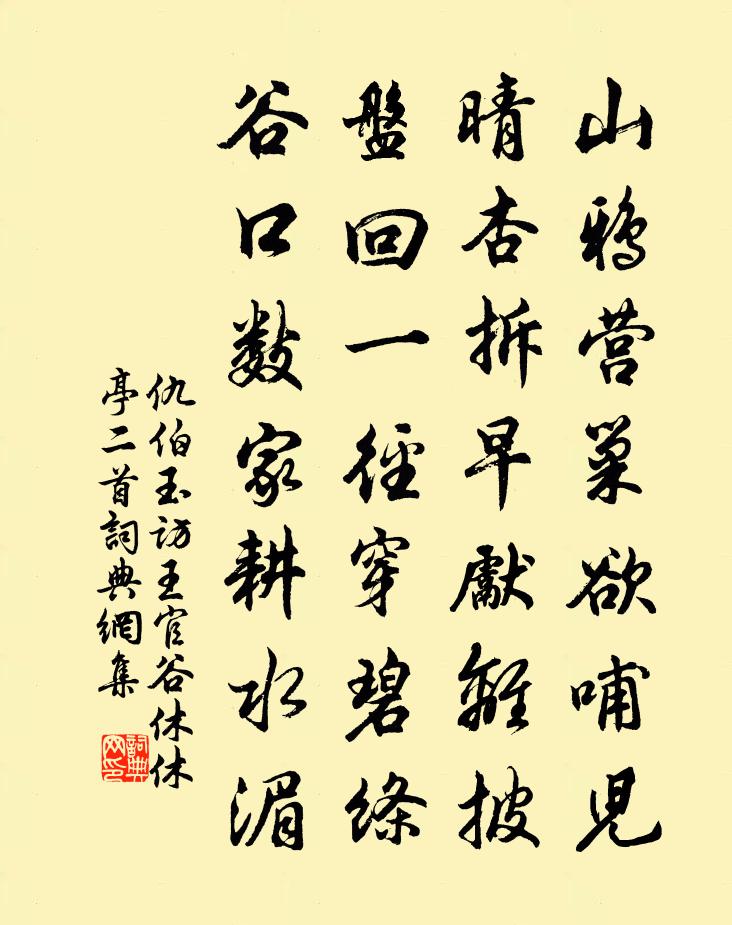 山鸦营巢欲哺児
晴杏拆早獻離披
盤回一徑穿碧絛
谷口数家耕水湄
仇伯玉访王官谷休休
亭二首詞典網集
詞典
网印